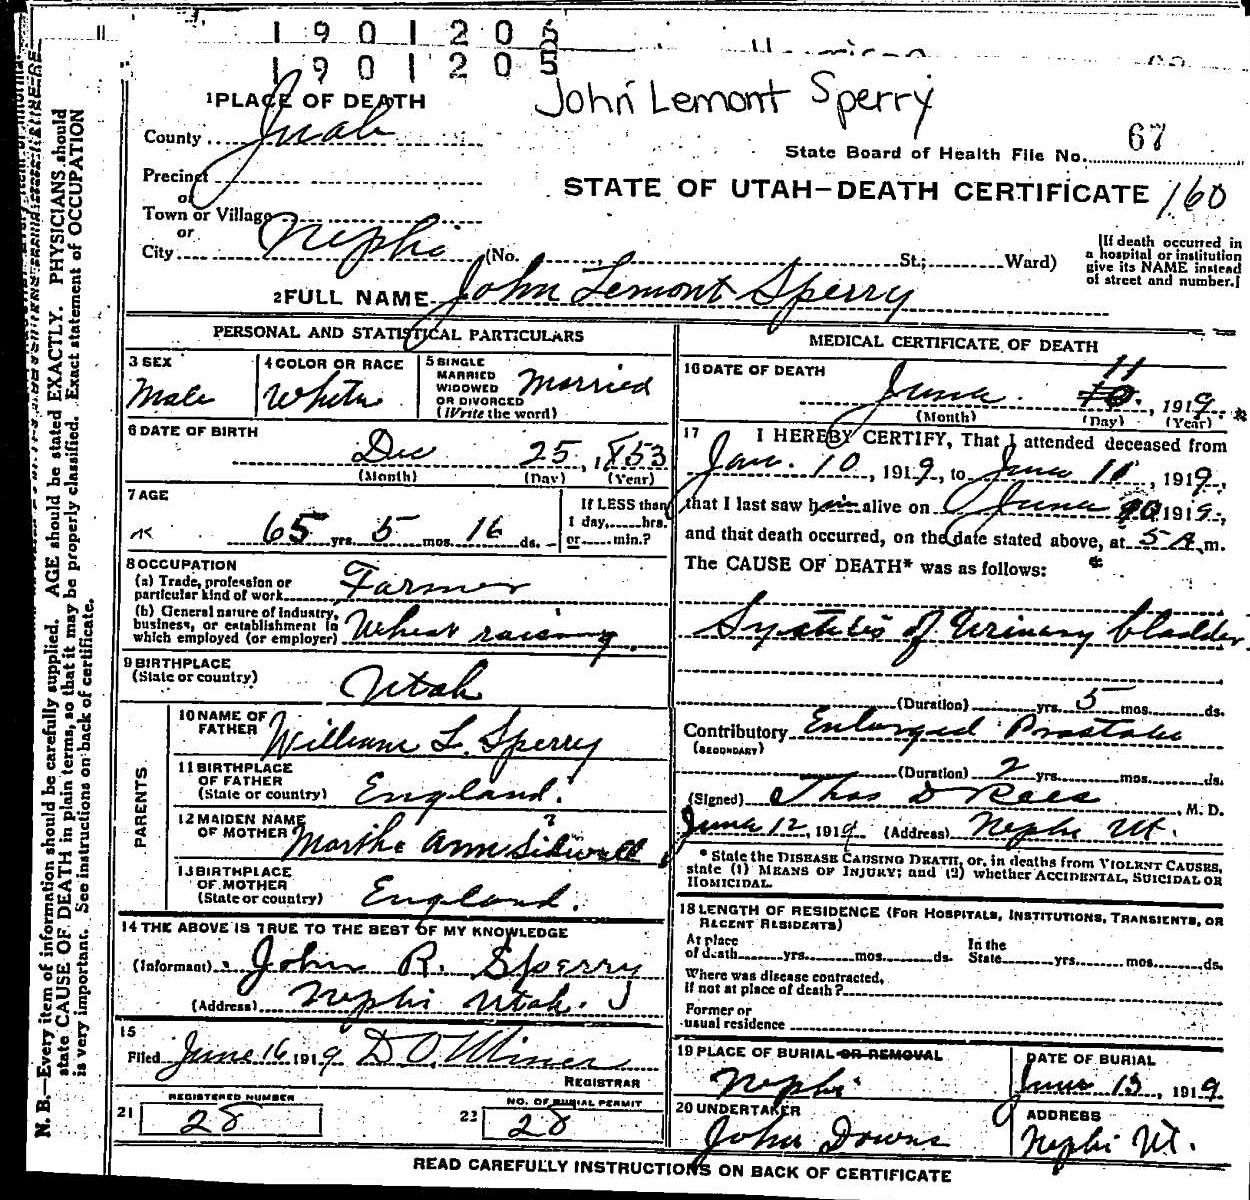 1901206
1901205
John Lemont Sperry
1 PLACE OF DEATH
County Juab
State Board of Health File No. 67
Precinct
or
STATE OF UTAH—DEATH CERTIFICATE 160
Town or Village
or
City Nephi (No. St.; Ward)
[If death occurred in
a hospital or institution
give its NAME instead
of street and number.]
2 FULL NAME John Lemont Sperry
PERSONAL AND STATISTICAL PARTICULARS
3 SEX
Male
4 COLOR OR RACE
White
5 SINGLE
MARRIED
WIDOWED
OR DIVORCED
(Write the word)
Married
6 DATE OF BIRTH
Dec 25, 1853
(Month) (Day) (Year)
7 AGE
65 yrs. 5 mos. 16 ds.
If LESS than
1 day, hrs.
or min.?
8 OCCUPATION
(a) Trade, profession or
particular kind of work Farmer
(b) General nature of industry,
business, or establishment in
which employed (or employer) Wheat raising.
9 BIRTHPLACE
(State or country)
Utah
PARENTS
10 NAME OF
FATHER
William L. Sperry
11 BIRTHPLACE
OF FATHER
(State or country) England.
12 MAIDEN NAME
OF MOTHER
Martha Ann Sidwell ?
13 BIRTHPLACE
OF MOTHER
(State or country) England.
14 THE ABOVE IS TRUE TO THE BEST OF MY KNOWLEDGE
(Informant) John R. Sperry
(Address) Nephi Utah.
15
Filed June 16 1919 D. O. Miner
REGISTRAR
21
REGISTERED NUMBER
28
22
NO. OF BURIAL PERMIT
28
MEDICAL CERTIFICATE OF DEATH
16 DATE OF DEATH
11
June 10, 1919.
(Month) (Day) (Year)
17 I HEREBY CERTIFY, That I attended deceased from
Jan. 10, 1919, to June 11, 1919,
that I last saw him alive on June 10 1919,
and that death occurred, on the date stated above, at 5 A. m.
The CAUSE OF DEATH* was as follows:
Systitis of Urinary bladder
(Duration) yrs. 5 mos. ds.
Contributory Enlarged Prostate
(SECONDARY)
(Duration) 2 yrs. mos. ds.
(Signed) Thos D Rees M. D.
June 12, 1919 (Address) Nephi Ut.
* State the DISEASE CAUSING DEATH, or, in deaths from VIOLENT CAUSES,
state (1) MEANS OF INJURY; and (2) whether ACCIDENTAL, SUICIDAL OR
HOMICIDAL.
18 LENGTH OF RESIDENCE (FOR HOSPITALS, INSTITUTIONS, TRANSIENTS, OR
RECENT RESIDENTS)
At place
of death yrs. mos. ds.
In the
State yrs. mos. ds.
Where was disease contracted,
if not at place of death?
Former or
usual residence
19 PLACE OF BURIAL OR REMOVAL
Nephi
DATE OF BURIAL
June 13, 1919
20 UNDERTAKER
John Downs
ADDRESS
Nephi Ut.
READ CAREFULLY INSTRUCTIONS ON BACK OF CERTIFICATE
N. B.—Every item of information should be carefully supplied. AGE should be stated EXACTLY. PHYSICIANS should
state CAUSE OF DEATH in plain terms, so that it may be properly classified. Exact statement of OCCUPATION
is very important. See instructions on back of certificate.